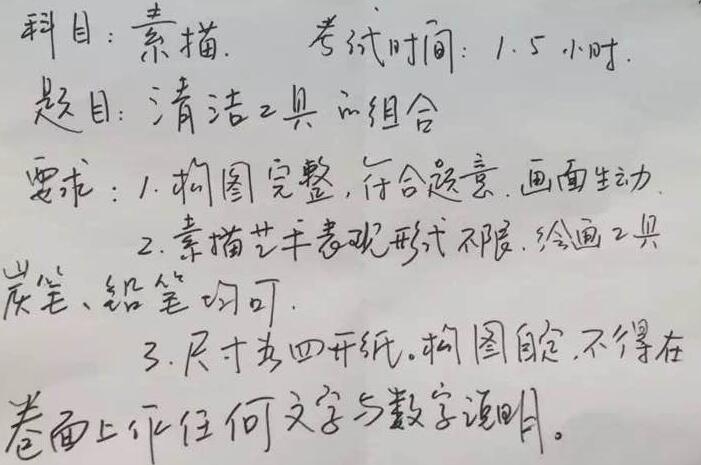 科目：素描. 考试时间：1.5小时.
题目：清洁工具的组合
要求：1.构图完整,符合题意.画面生动.
2.素描艺术表现形式不限.绘画工具
炭笔、铅笔均可.
3.尺寸为四开纸。构图自定,不得在
卷面上作任何文字与数字说明。